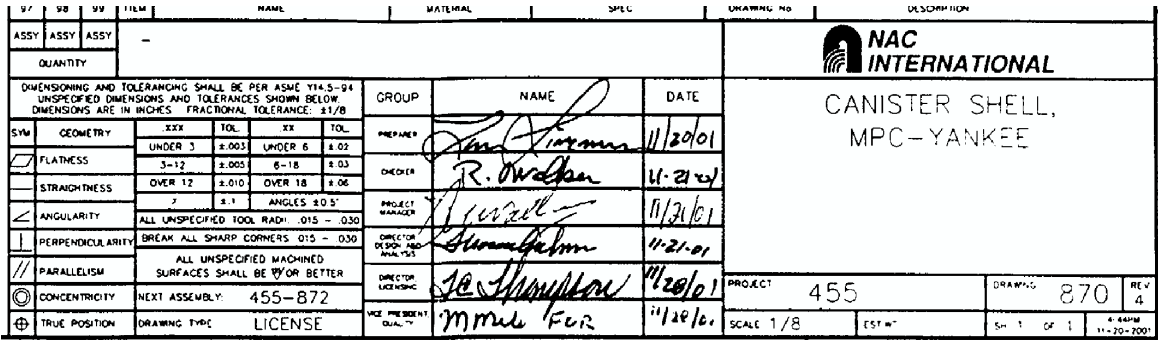 97 98 99 ITEM NAME MATERIAL SPEC DRAWING No DESCRIPTION
ASSY ASSY ASSY –
QUANTITY
NAC
INTERNATIONAL
DIMENSIONING AND TOLERANCING SHALL BE PER ASME Y14.5-94
UNSPECIFIED DIMENSIONS AND TOLERANCES SHOWN BELOW.
DIMENSIONS ARE IN INCHES FRACTIONAL TOLERANCE: ±1/8
SYM GEOMETRY .XXX TOL. XX TOL.
UNDER 3 ±.003 UNDER 6 ±.02
FLATNESS 3-12 ±.005 6-18 ±.03
STRAIGHTNESS OVER 12 ±.010 OVER 18 ±.06
±.1 ANGLES ±0.5°
ANGULARITY ALL UNSPECIFIED TOOL RADII .015 - .030
PERPENDICULARITY BREAK ALL SHARP CORNERS .015 - .030
PARALLELISM ALL UNSPECIFIED MACHINED
SURFACES SHALL BE OR BETTER
CONCENTRICITY NEXT ASSEMBLY: 455-872
TRUE POSITION DRAWING TYPE LICENSE
GROUP NAME DATE
PREPARER 11/20/01
CHECKER R. 11-21-01
PROJECT
MANAGER 11/21/01
DIRECTOR
DESIGN AND
ANALYSIS 11-21-01
DIRECTOR
LICENSING TC Thompson 11/28/01
VICE PRESIDENT
QUALITY FOR 11/28/01
CANISTER SHELL,
MPC-YANKEE
PROJECT 455 DRAWING 870 REV 4
SCALE 1/8 EST WT SH 1 OF 1 4:44PM
11-20-2001